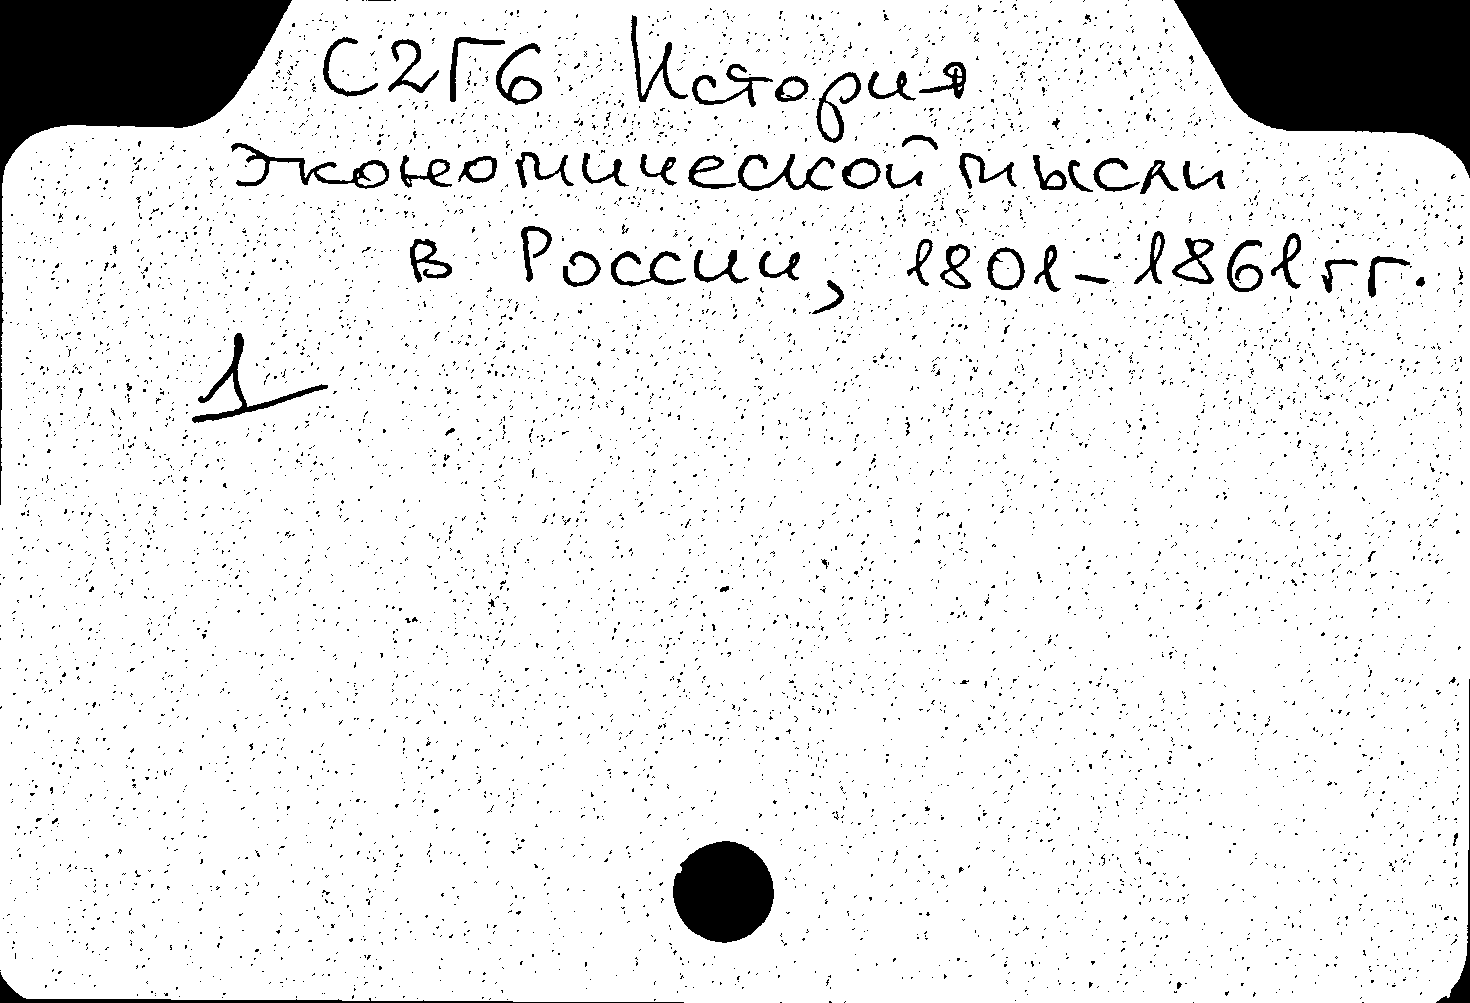 С2Г6 История
экономической мысли
в России, 1801-1861 гг.
1